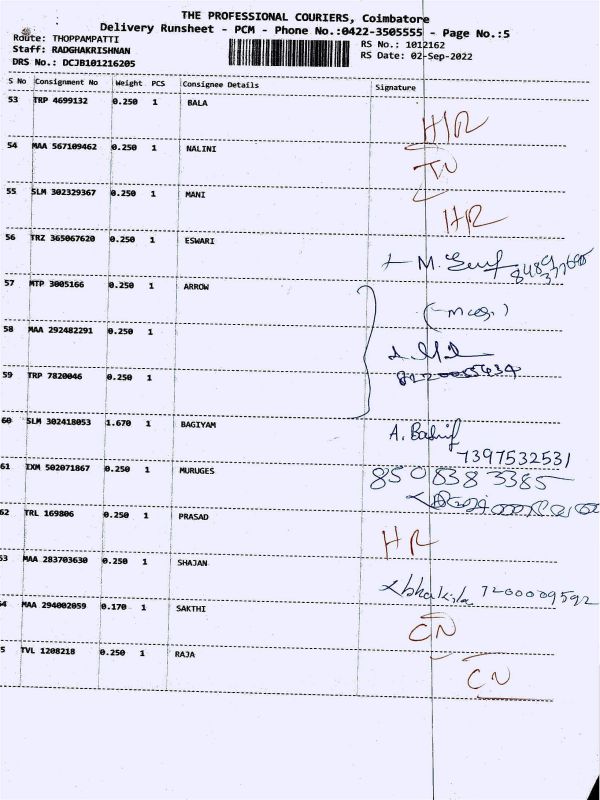 THE PROFESSIONAL COURIERS, Coimbatore
Delivery Runsheet - PCM - Phone No.:0422-3505555 - Page No.:5
Route: THOPPAMPATTI
RS No.: 1012162
Staff: RADGHAKRISHNAN
RS Date: 02-Sep-2022
DRS No.: DCJB101216205
S No Consignment No Weight PCS Consignee Details Signature
53 TRP 4699132 0.250 1 BALA
H/R
54 MAA 567109462 0.250 1 NALINI
IN
55 SLM 302329367 0.250 1 MANI
HR
56 TRZ 365067620 0.250 1 ESWARI
M.
57 MTP 3005166 0.250 1 ARROW
58 MAA 292482291 0.250 1
59 TRP 7820046 0.250 1
60 SLM 302418053 1.670 1 BAGIYAM
A.
7397532531
61 IXM 502071867 0.250 1 MURUGES
8508383385
62 TRL 169806 0.250 1 PRASAD
HR
53 MAA 283703630 0.250 1 SHAJAN
7200009592
54 MAA 294002059 0.170 1 SAKTHI
CN
5 TVL 1208218 0.250 1 RAJA
CN